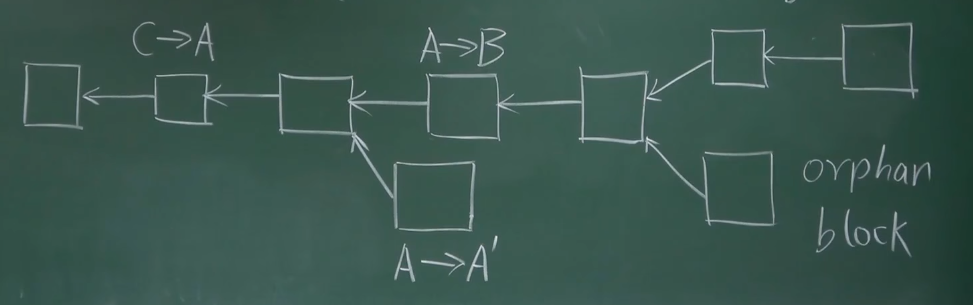 C→A
A→B
A→A'
orphan
block